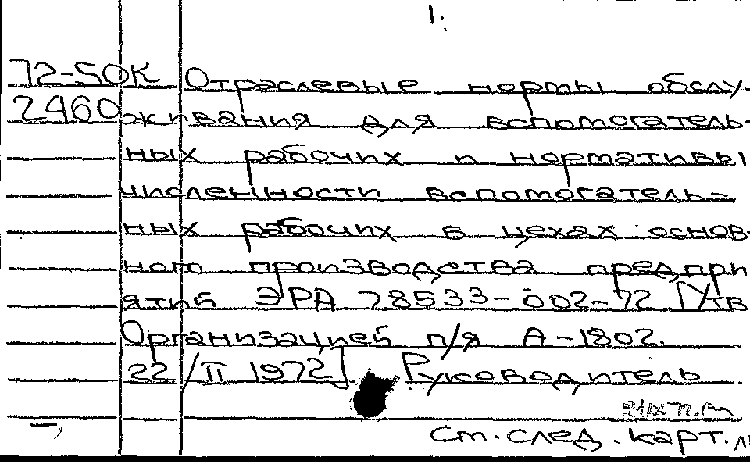 1.
72-50К Отраслевые нормы обслу-
2460 живания для вспомогатель-
ных рабочих и нормативы
численности вспомогатель-
ных рабочих в цехах основ-
ного производства предпри
ятий ЭРА 78533-002-72 [Утв
Организацией п/я А-1802.
22/II 1972] Руководитель
См. след. карт.